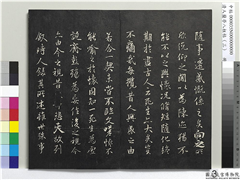 隨事遷感慨係之矣向之所
欣俛仰之間以為陳迹猶不
能不以之興懷況脩短隨化終
期於盡古人云死生亦大矣豈
不痛哉每攬昔人興感之由
若合一契未嘗不臨文嗟悼不
能喻之於懷固知一死生為虛
誕齊彭殤為妄作後之視今
亦由今之視昔悲夫故列
敘時人錄其所述雖世殊事